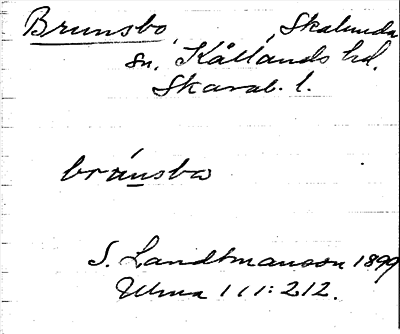 Brunsbo, Skalunda
sn, Kållands hd.
Skarab. l.
brúnsba
S. Landtmanson 1899
Ulma 111:212.